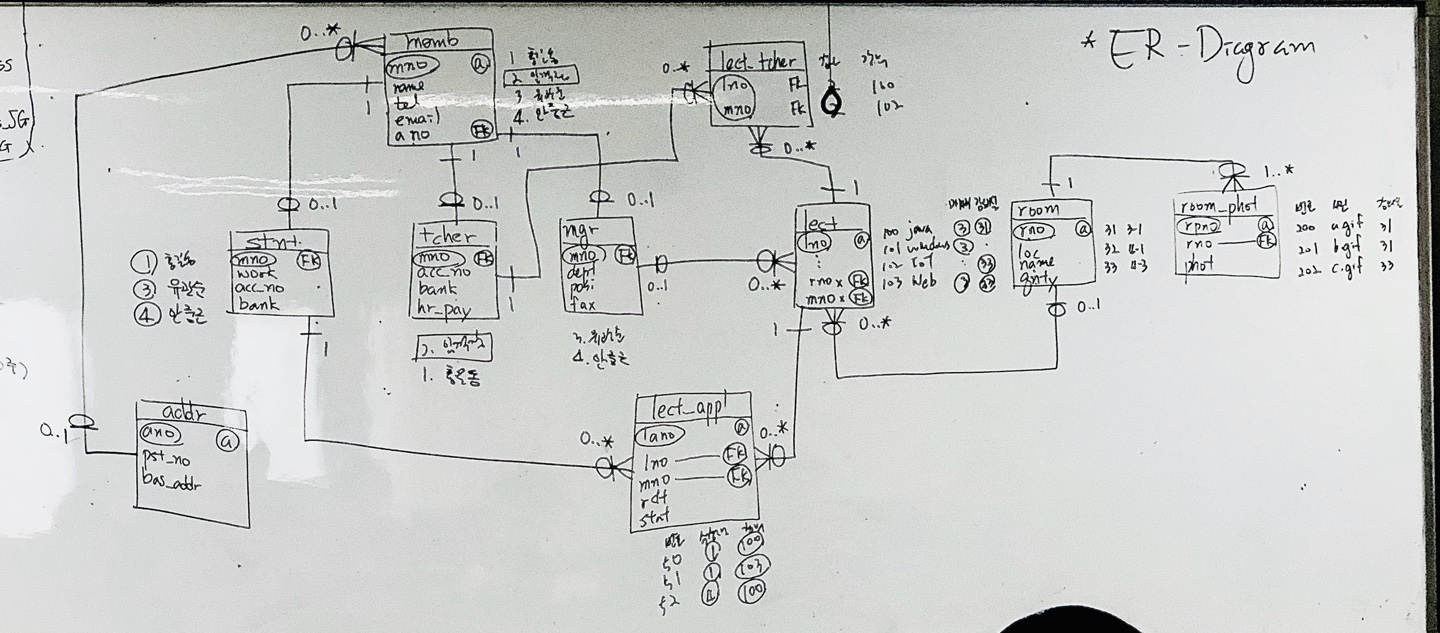 * ER-Diagram
0..*
memb
mno a
name
tel
email
ano FK
1 홍길동
2 임꺽정
3 유관순
4. 안중근
1
1
1
1
0..*
lect_tcher
lno FK
mno FK
100
102
0..*
1
0..1
stnt.
mno FK
work
acc_no
bank
① 홍길동
③ 유관순
④ 안중근
1
0..1
tcher
mno FK
acc_no
bank
hr_pay
1
2. 임꺽정
1. 홍길동
0..1
mgr
mno FK
dept
posi
fax
0..1
3. 유관순
4. 안중근
0..*
lect
lno a
:
rno x FK
mno x FK
100 java 3 31
101 windows 3
102 IoT 33
103 Web
1
0..*
1
room
rno a
loc
name
qnty
31 3-1
32 4-1
33 4-3
0..1
1..*
room_phot
rpno a
rno FK
phot
번호 사진 강의실
200 a.gif 31
201 b.gif 31
202 c.gif 33
0..1
addr
ano a
pst_no
bas_addr
0..*
lect_appl
lano a
lno FK
mno FK
rdt
stat
0..*
번호
50 1 100
51 1 103
52 100
SS
SG